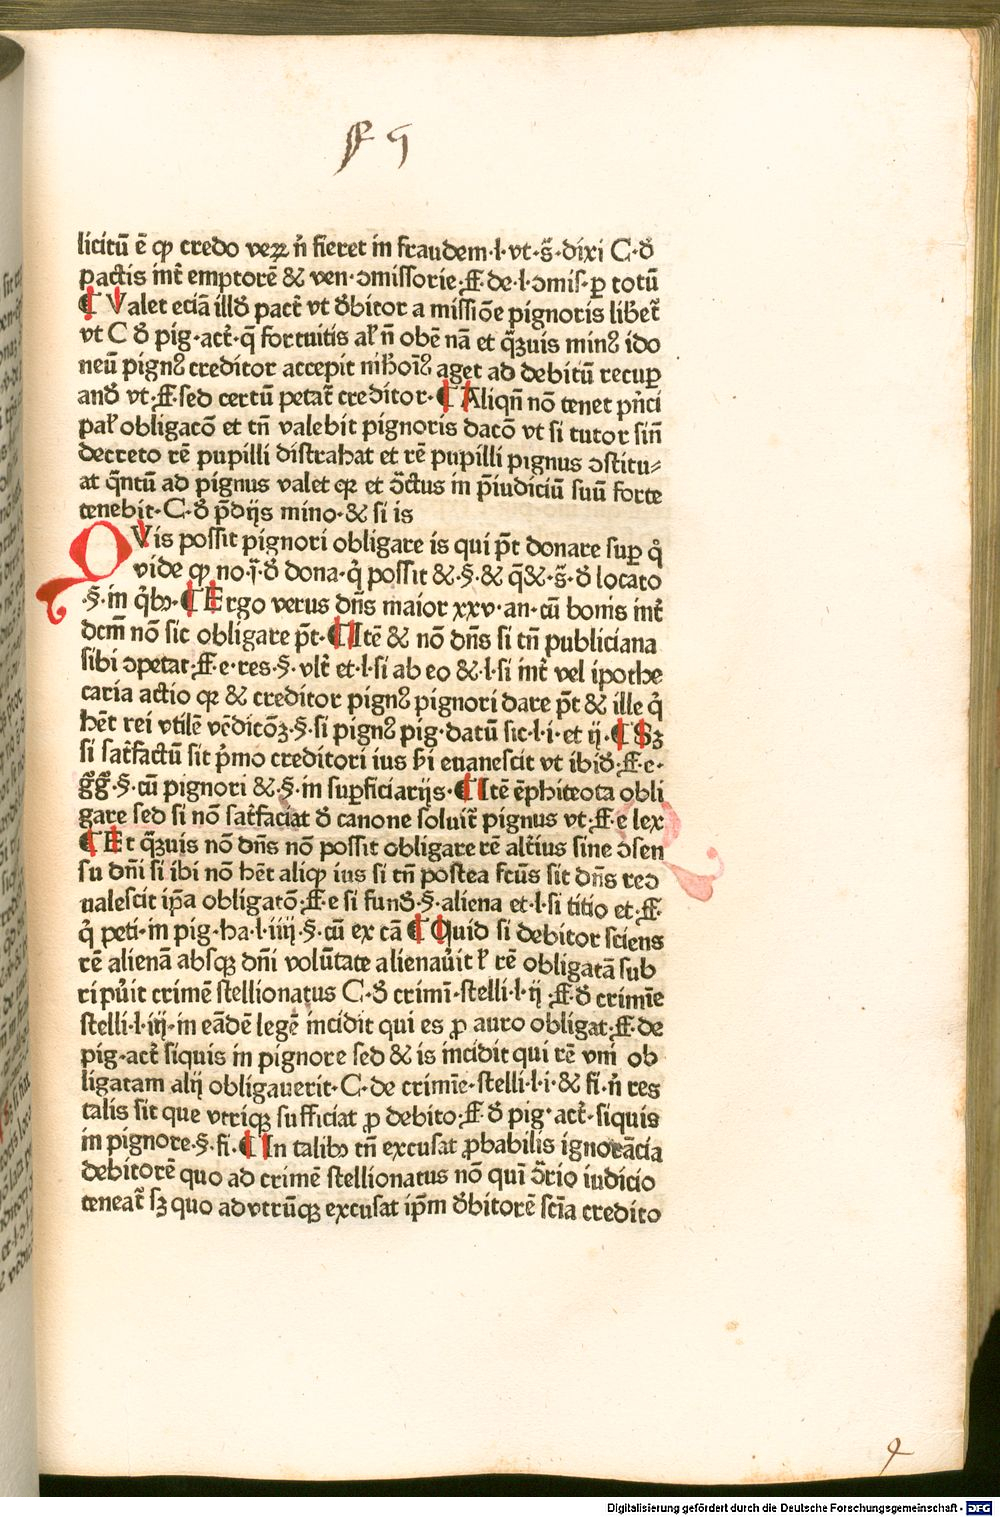 licitū ē qꝫ credo veꝝ n̄ fieret in fraudem·l·vt·s̄·dixi C·ꝺ̄
pactis int̄ emptorē & ven·ↄmissorie·ff·de·l·ↄmis·ꝑ totū
¶ Valet eciā illꝺ̄ pact̄ vt ꝺ̄bitor a missiōe pignoris libet̄
vt C ꝺ̄ pig·act̄·q̄ fortuitis al̄ n̄ obē nā et q̄ꝫuis minꝰ ido
neū pignꝰ creditor accepit nihoīꝰ aget ad debitū recuꝑ
andꝺ̄ vt·ff·sed certū petat̄ creditor·¶ Aliqn̄ nō tenet pn̄ci
pal̄ obligacō et tn̄ valebit pignoris dacō vt si tutor sin̄
decreto rē pupilli distrahat et rē pupilli pignus ↄstitu⸗
at q̄ntū ad pignus valet qꝛ et ↄ̄ctus in p̄iudiciū suū forte
tenebit·C·ꝺ̄ p̄dijs mino·& si is
QVis possit pignori obligare is qui p̄t donare suꝑ q̊
vide qꝫ no·ī·ꝺ̄ dona·q̊ possit &·§·& q̄&·s̄·ꝺ̄ locato
·§·in q̊bꝫ·¶ Ergo verus dn̄s maior xxv·an·cū bonis int̄
dcm̄ nō sic obligare p̄t·¶ Itē & nō dn̄s si tn̄ publiciana
sibi ↄpetat·ff·e·res·§·vlt̄ et·l·si ab eo &·l·si int̄ vel ipothe
caria actio qꝛ & creditor pignꝰ pignori dare p̄t & ille q̊
hēt rei vtilē vēdicōꝫ·§·si pignꝰ pig·datū sic·l·i·et ij·¶ Sꝫ
si sat̄factū sit p̄mo creditori ius h̄i euanescit vt ibiꝺ̄·ff·e·
ḡḡ·§·cū pignori &·§·in suꝑficiarijs·¶ Itē ēphiteota obli
gare sed si nō sat̄faciat ꝺ̄ canone soluit̄ pignus vt·ff·e lex
¶ Et q̄ꝫuis nō dn̄s nō possit obligare rē alt̄ius sine ↄsen
su dn̄i si ibi nō hēt aliqꝫ ius si tn̄ postea fcūs sit dn̄s reↄ
ualescit ip̄a obligatō·ff·e si funꝺ̄·§·aliena et·l·si titio et·ff·
q̊ peti·in pig·ha·l·iiij·§·cū ex cā ¶ Quid si debitor sciens
rē alienā absqꝫ dn̄i volūtate alienau̇it l̄ rē obligatā sub
ripu̇it crimē stellionatus C·ꝺ̄ crimī·stelli·l·ij·ff·ꝺ̄ crimīe
stelli·l·iij·in eādē legē incidit qui es ꝓ auro obligat·ff·de
pig·act̄ siquis in pignore sed & is incidit qui rē vni ob
ligatam alij obligauerit·C·de crimīe·stelli·l·i·& fi·n̄ res
talis sit que vtriqꝫ sufficiat ꝓ debito·ff·ꝺ̄ pig·act̄·siquis
in pignore·§·fi·¶ In talibꝫ tn̄ excusat ꝓbabilis ignorācia
debitorē quo ad crimē stellionatus nō quī ↄ̄rio iudicio
teneat̄ sꝫ quo ad vtrūqꝫ excusat ip̄m ꝺ̄bitorē scīa credito
Digitalisierung gefördert durch die Deutsche Forschungsgemeinschaft - DFG